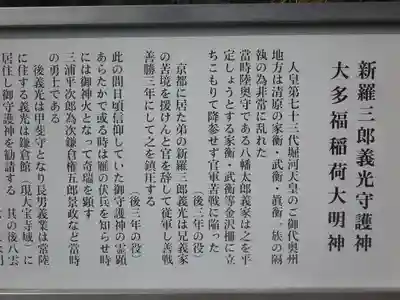 新羅三郎義光守護神
大多福稲荷大明神
人皇第七十三代堀河天皇のご御代奥州
地方は清原の家衡・武衡・真衡一族の隔
執の為非常に乱れた　（後三年の役）
当時陸奥守である八幡太郎義家は之を平
定しょうとするも家衡・武衡等金沢柵に立
ちこもりて降参せず官軍苦戦に陥った
京都に居た弟の新羅三郎義光は兄義家
の苦境を援けんと官を辞して従軍し善戦
善勝三年にして之を鎮圧する
（後三年の役）
此の間日頃信仰していた御守護神の霊顕
あらたかで或る時は雁の伏兵を知らせ時
には御神火となって奇瑞を顕す
三浦平次郎為次鎌倉権五郎景政など当時
の勇士である
後義光は甲斐守となり長男義業は常陸
に住する義光は鎌倉館（現大宝寺域）に
居住し御守護神を勧請する　其の後八雲